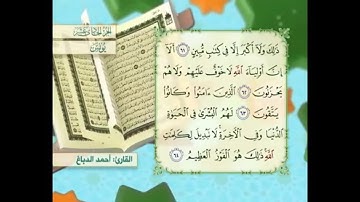 الجزء الحادي عشر
يونس
ذَٰلِكَ وَلَا أَكْبَرَ إِلَّا فِي كِتَابٍ مُّبِينٍ ٦١ أَلَا
إِنَّ أَوْلِيَاءَ اللَّهِ لَا خَوْفٌ عَلَيْهِمْ وَلَا هُمْ
يَحْزَنُونَ ٦٢ الَّذِينَ ءَامَنُوا وَكَانُوا
يَتَّقُونَ ٦٣ لَهُمُ الْبُشْرَىٰ فِي الْحَيَوٰةِ
الدُّنْيَا وَفِي الْآخِرَةِ لَا تَبْدِيلَ لِكَلِمَاتِ
اللَّهِ ذَٰلِكَ هُوَ الْفَوْزُ الْعَظِيمُ ٦٤
القارئ: أحمد الدباغ